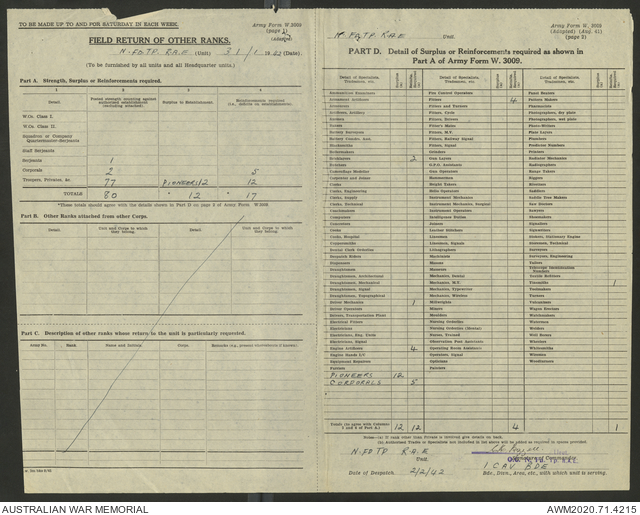 TO BE MADE UP TO AND FOR SATURDAY IN EACH WEEK.
Army Form W. 3009
(page 1)
(Adapted)
FIELD RETURN OF OTHER RANKS.
N. FD. TP. R.A.E (Unit) 31/1 1942 (Date).
(To be furnished by all units and all Headquarter units.)
Part A. Strength, Surplus or Reinforcements required.
1 2 3 4
Detail.
Surplus to Establishment.
W.Os. Class I.
W.Os. Class II.
Squadron or Company Quartermaster-Serjeants
Staff Serjeants
Serjeants 1
Corporals 2 5
Troopers, Privates, &c. 77 PIONEERS 12 12
TOTALS 80 * 12 * 17
*These totals should agree with the details shown in Part D on page 2 of Army Form W.3009.
Part B. Other Ranks attached from other Corps.
Detail.
Unit and Corps to which they belong.
Detail.
Unit and Corps to which they belong.
Part C. Description of other ranks whose return to the unit is particularly requested.
Army No. Rank. Name and Initials. Corps. Remarks (e.g., present whereabouts if known).
N. FD TP R.A.E Unit.
Army Form W. 3009
(Adapted) (Aug. 41)
(page 2)
PART D. Detail of Surplus or Reinforcements required as shown in
Part A of Army Form W. 3009.
Detail of Specialists, Tradesmen, etc.
Detail of Specialists, Tradesmen, etc.
Detail of Specialists, Tradesmen, etc.
Fire Control Operators
Panel Beaters
Armament Artificers
Fitters 4
Pattern Makers
Fitters and Turners
Pharmacists
Fitters, Cycle
Photographers, dry plate
Photographers, wet plate
Bakers
Fitter's Mates
Photo-Writers
Fitters, M.V.
Plate Layers
Fitters, Railway Signal
Plumbers
Blacksmiths
Fitters, Signal
Predictor Numbers
Boilermakers
Grinders
Printers
Bricklayers 2
Gun Layers
Radiator Mechanics
Butchers
G.P.O. Assistants
Radiographers
Gun Operators
Range Takers
Carpenters and Joiners
Hammermen
Riggers
Clerks
Height Takers
Riveters
Clerks, Engineering
Saddlers
Clerks, Supply
Instrument Mechanics
Saddle Tree Makers
Clerks, Technical
Instrument Mechanics, Surgical
Saw Doctors
Instrument Operators
Sawyers
Computers
Intelligence Duties
Shoemakers
Concretors
Joiners
Signallers
Cooks
Signwriters
Cooks, Hospital
Linesmen
Coppersmiths
Linesmen, Signals
Storemen, Technical
Dental Clerk Orderlies
Lithographers
Surveyors
Despatch Riders
Machinists
Surveyors, Engineering
Dispensers
Masons
Tailors
Draughtsmen
Masseurs
Draughtsmen, Architectural
Mechanics, Dental
Draughtsmen, Mechanical
Mechanics, M.V.
Tinsmiths 1
Draughtsmen, Signal
Mechanics, Typewriter
Toolmakers
Draughtsmen, Topographical
Mechanics, Wireless
Turners
Driver Mechanics 1
Millwrights
Vulcanizers
Driver Operators
Miners
Wagon Erectors
Drivers, Transportation Plant
Moulders
Watchmakers
Electrical Fitters
Nursing Orderlies
Electricians
Nursing Orderlies (Mental)
Welders
Nurses, Trained
Well Borers
Electricians, Signal
Wheelers
Engine Artificers 4
Operating Room Assistants
Whitesmiths
Engine Hands I.C.
Operators, Signal
Wiremen
Equipment Repairers
Opticians
Woodturners
Farriers
Painters
PIONEERS 12
CORPORALS 5
Totals (to agree with Columns 3 and 4 of Part A.) 12 12 4 1
Notes.—(a) If rank other than Private is involved give details on back.
(b) Authorised Trades or Specialists not included in list above will be added as required in spaces provided.
N. FD TP R.A.E Unit.
Signature of Commander.
1 CAV BDE
Bde., Divn., Area, etc., with which unit is serving.
Date of Despatch. 2/2/42
AUSTRALIAN WAR MEMORIAL
AWM2020.71.4215